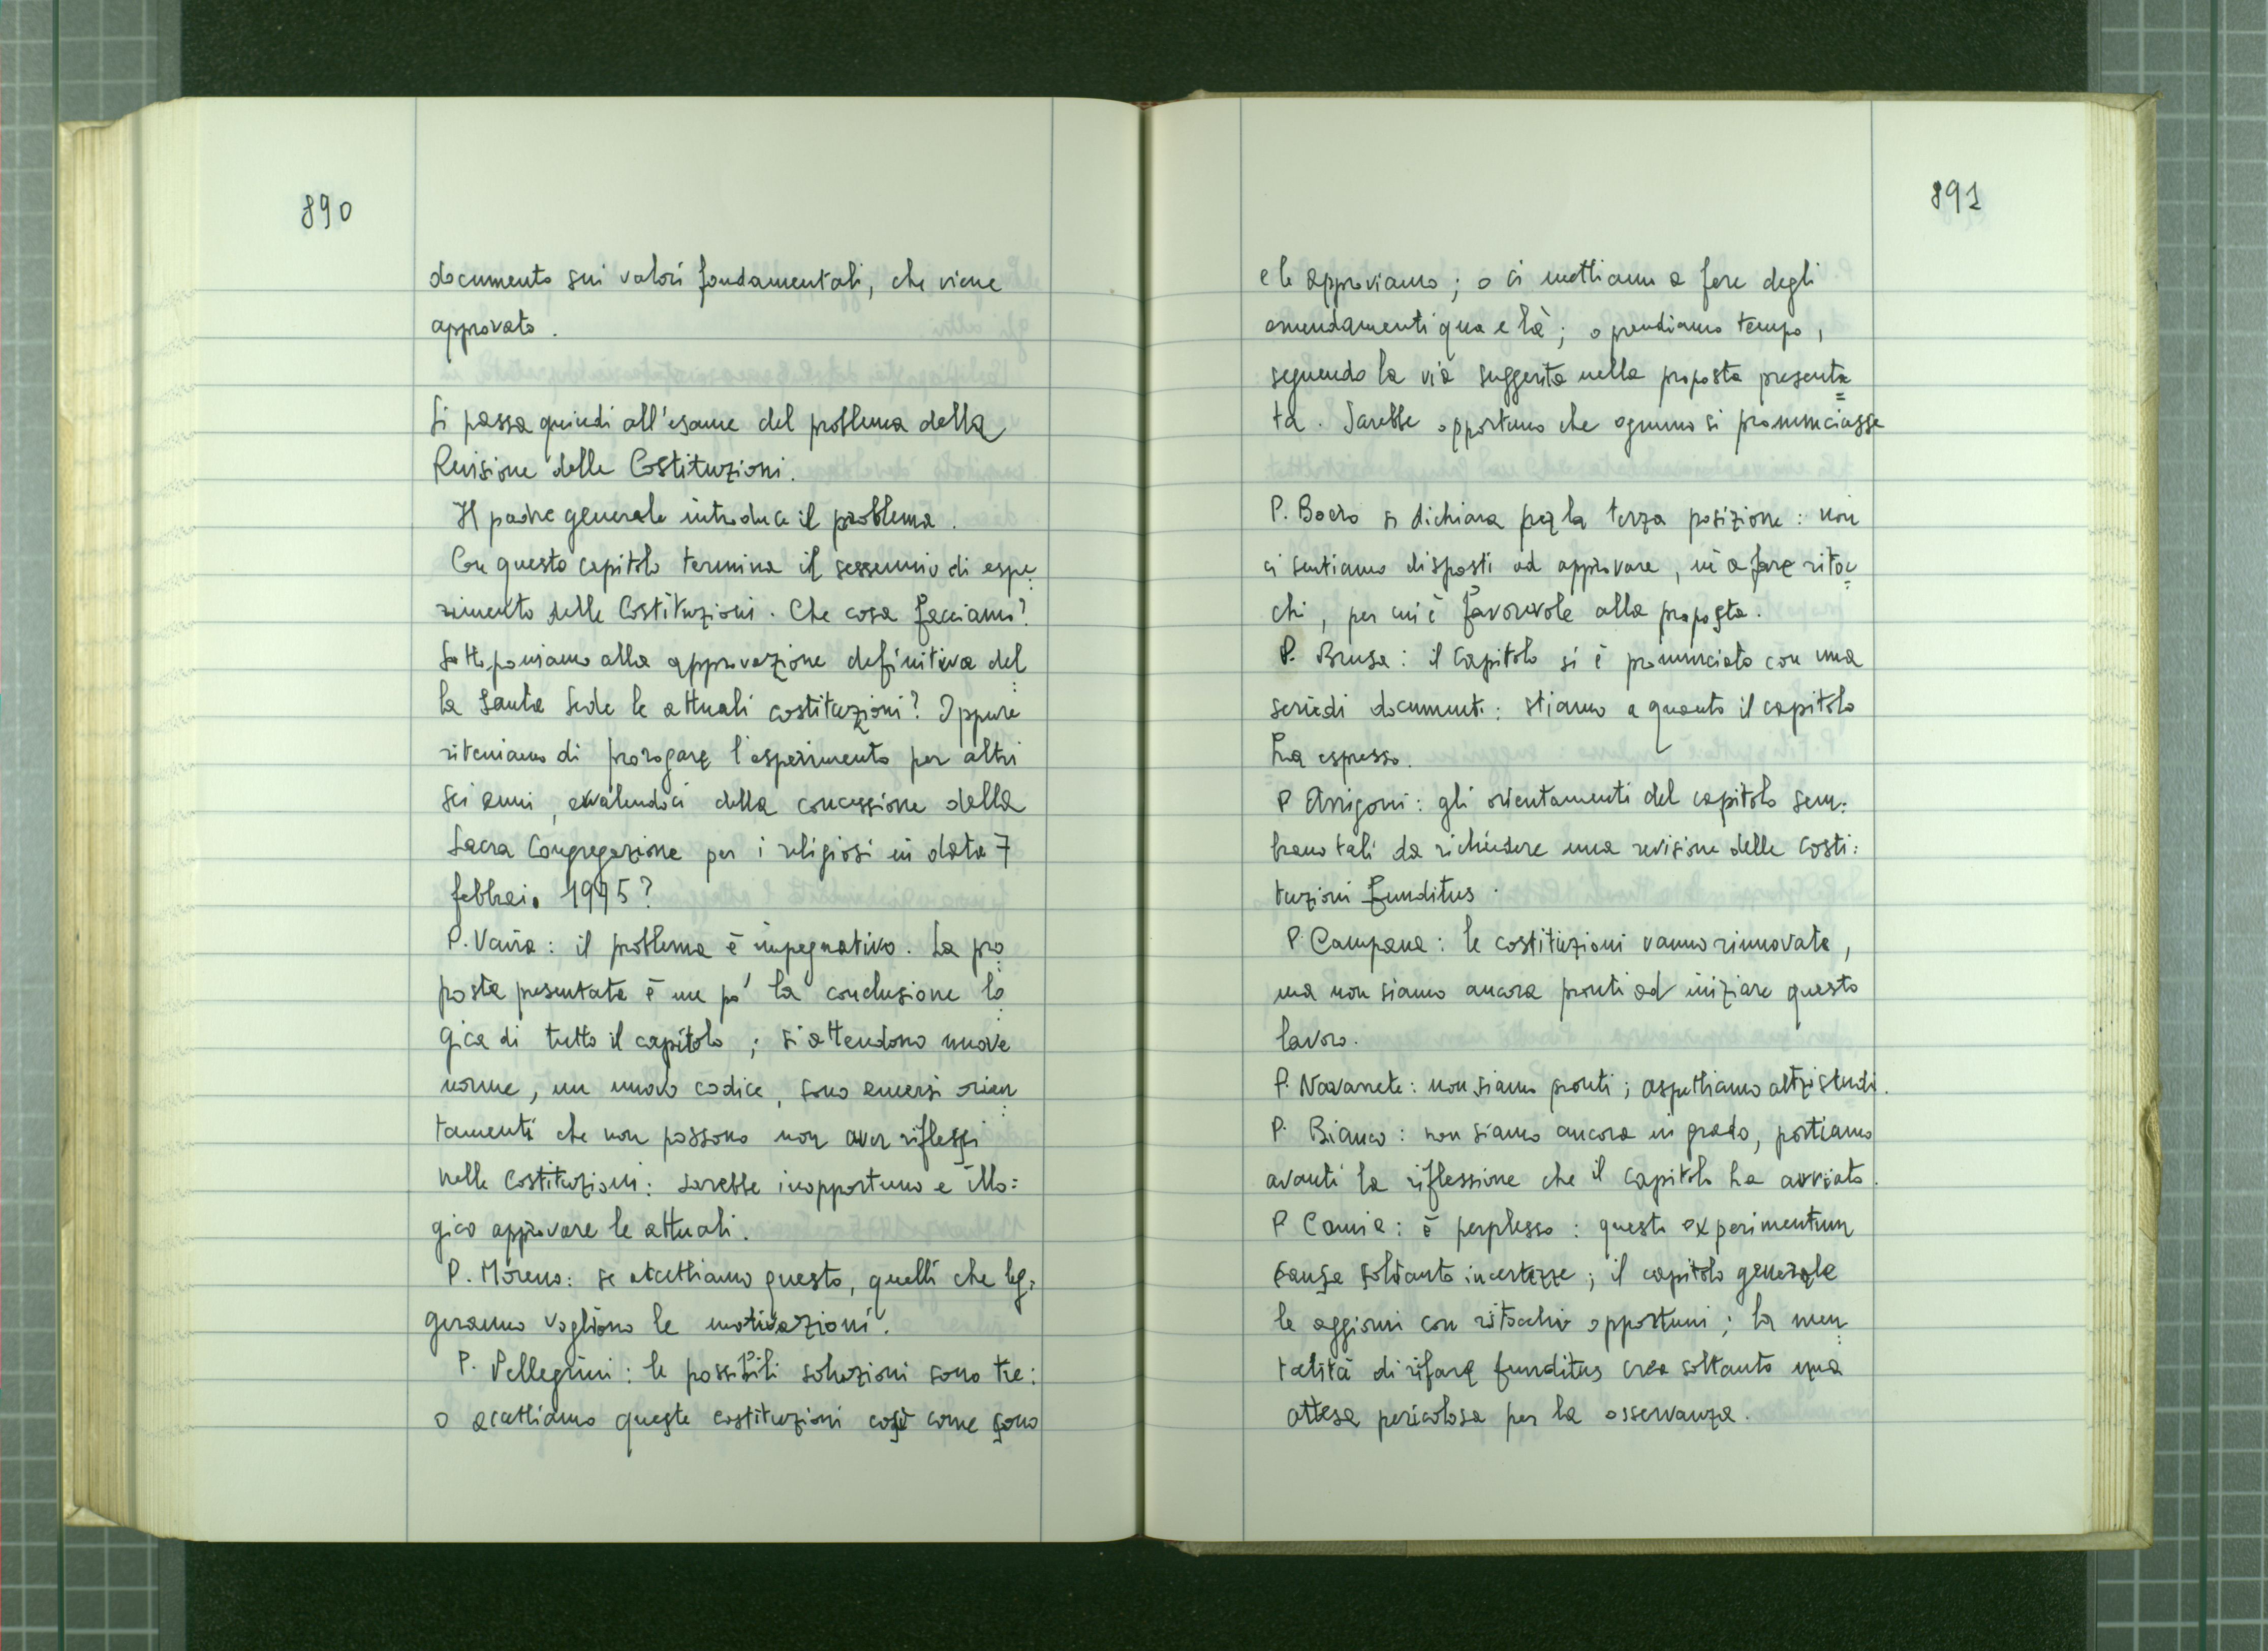 890
documento sui valori fondamentali, che viene
approvato.
Si passa quindi all'esame del problema della
Revisione delle Costituzioni.
Il padre generale introduce il problema.
Con questo capitolo termina il sessennio di espe:
rimento delle Costituzioni. Che cosa facciamo?
Sottoponiamo alla approvazione definitiva del:
la Santa Sede le attuali costituzioni? Oppure
riteniamo di prorogare l'esperimento per altri
sei anni, avvalendoci della concessione della
Sacra Congregazione per i religiosi in data 7
febbraio 1975?
P. Vaira: il problema è impegnativo. La pro:
posta presentata è un po' la conclusione lo:
gica di tutto il capitolo; si attendono nuove
norme, un nuovo codice, sono emersi orien:
tamenti che non possono non aver riflessi
nelle Costituzioni: sarebbe inopportuno e illo:
gico approvare le attuali.
P. Moreno: se accettiamo questo, quelli che leg:
geranno vogliono le motivazioni.
P. Pellegrini: le possibili soluzioni sono tre:
o accettiamo queste costituzioni così come sono
891
e le approviamo; o ci mettiamo a fare degli
emendamenti qua e là; o prendiamo tempo,
seguendo la via suggerita nella proposta presenta=
ta. Sarebbe opportuno che ognuno si pronunciasse
P. Boero si dichiara per la terza posizione: non
ci sentiamo disposti ad approvare, nè a fare ritoc=
chi, per cui è favorevole alla proposta.
P. Brusa: il Capitolo si è pronunciato con una
serie di documenti: stiamo a quanto il capitolo
ha espresso.
P Arrigoni: gli orientamenti del capitolo sem:
brano tali da richiedere una revisione delle Costi:
tuzioni funditus.
P. Campana: le costituzioni vanno rinnovate,
ma non siamo ancora pronti ad iniziare questo
lavoro.
P. Navarrete: non siamo pronti; aspettiamo altri studi.
P. Bianco: non siamo ancora in grado, portiamo
avanti la riflessione che il Capitolo ha avviato.
P Camia: è perplesso: questo experimentum
causa soltanto incertezze; il capitolo generale
le aggiorni con ritocchi opportuni; la men:
talità di rifare funditus crea soltanto una
attesa pericolosa per la osservanza.